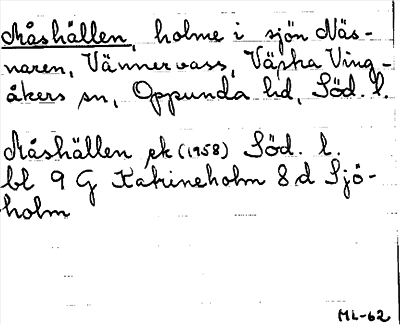 Måshällen, holme i sjön Näs-
naren, Vännervass, Västra Ving-
åkers sn, Oppunda hd, Söd. l.
Måshällen ek (1958) Söd. l.
bl 9 G Katrineholm 8 d Sjö-
holm
ML-62